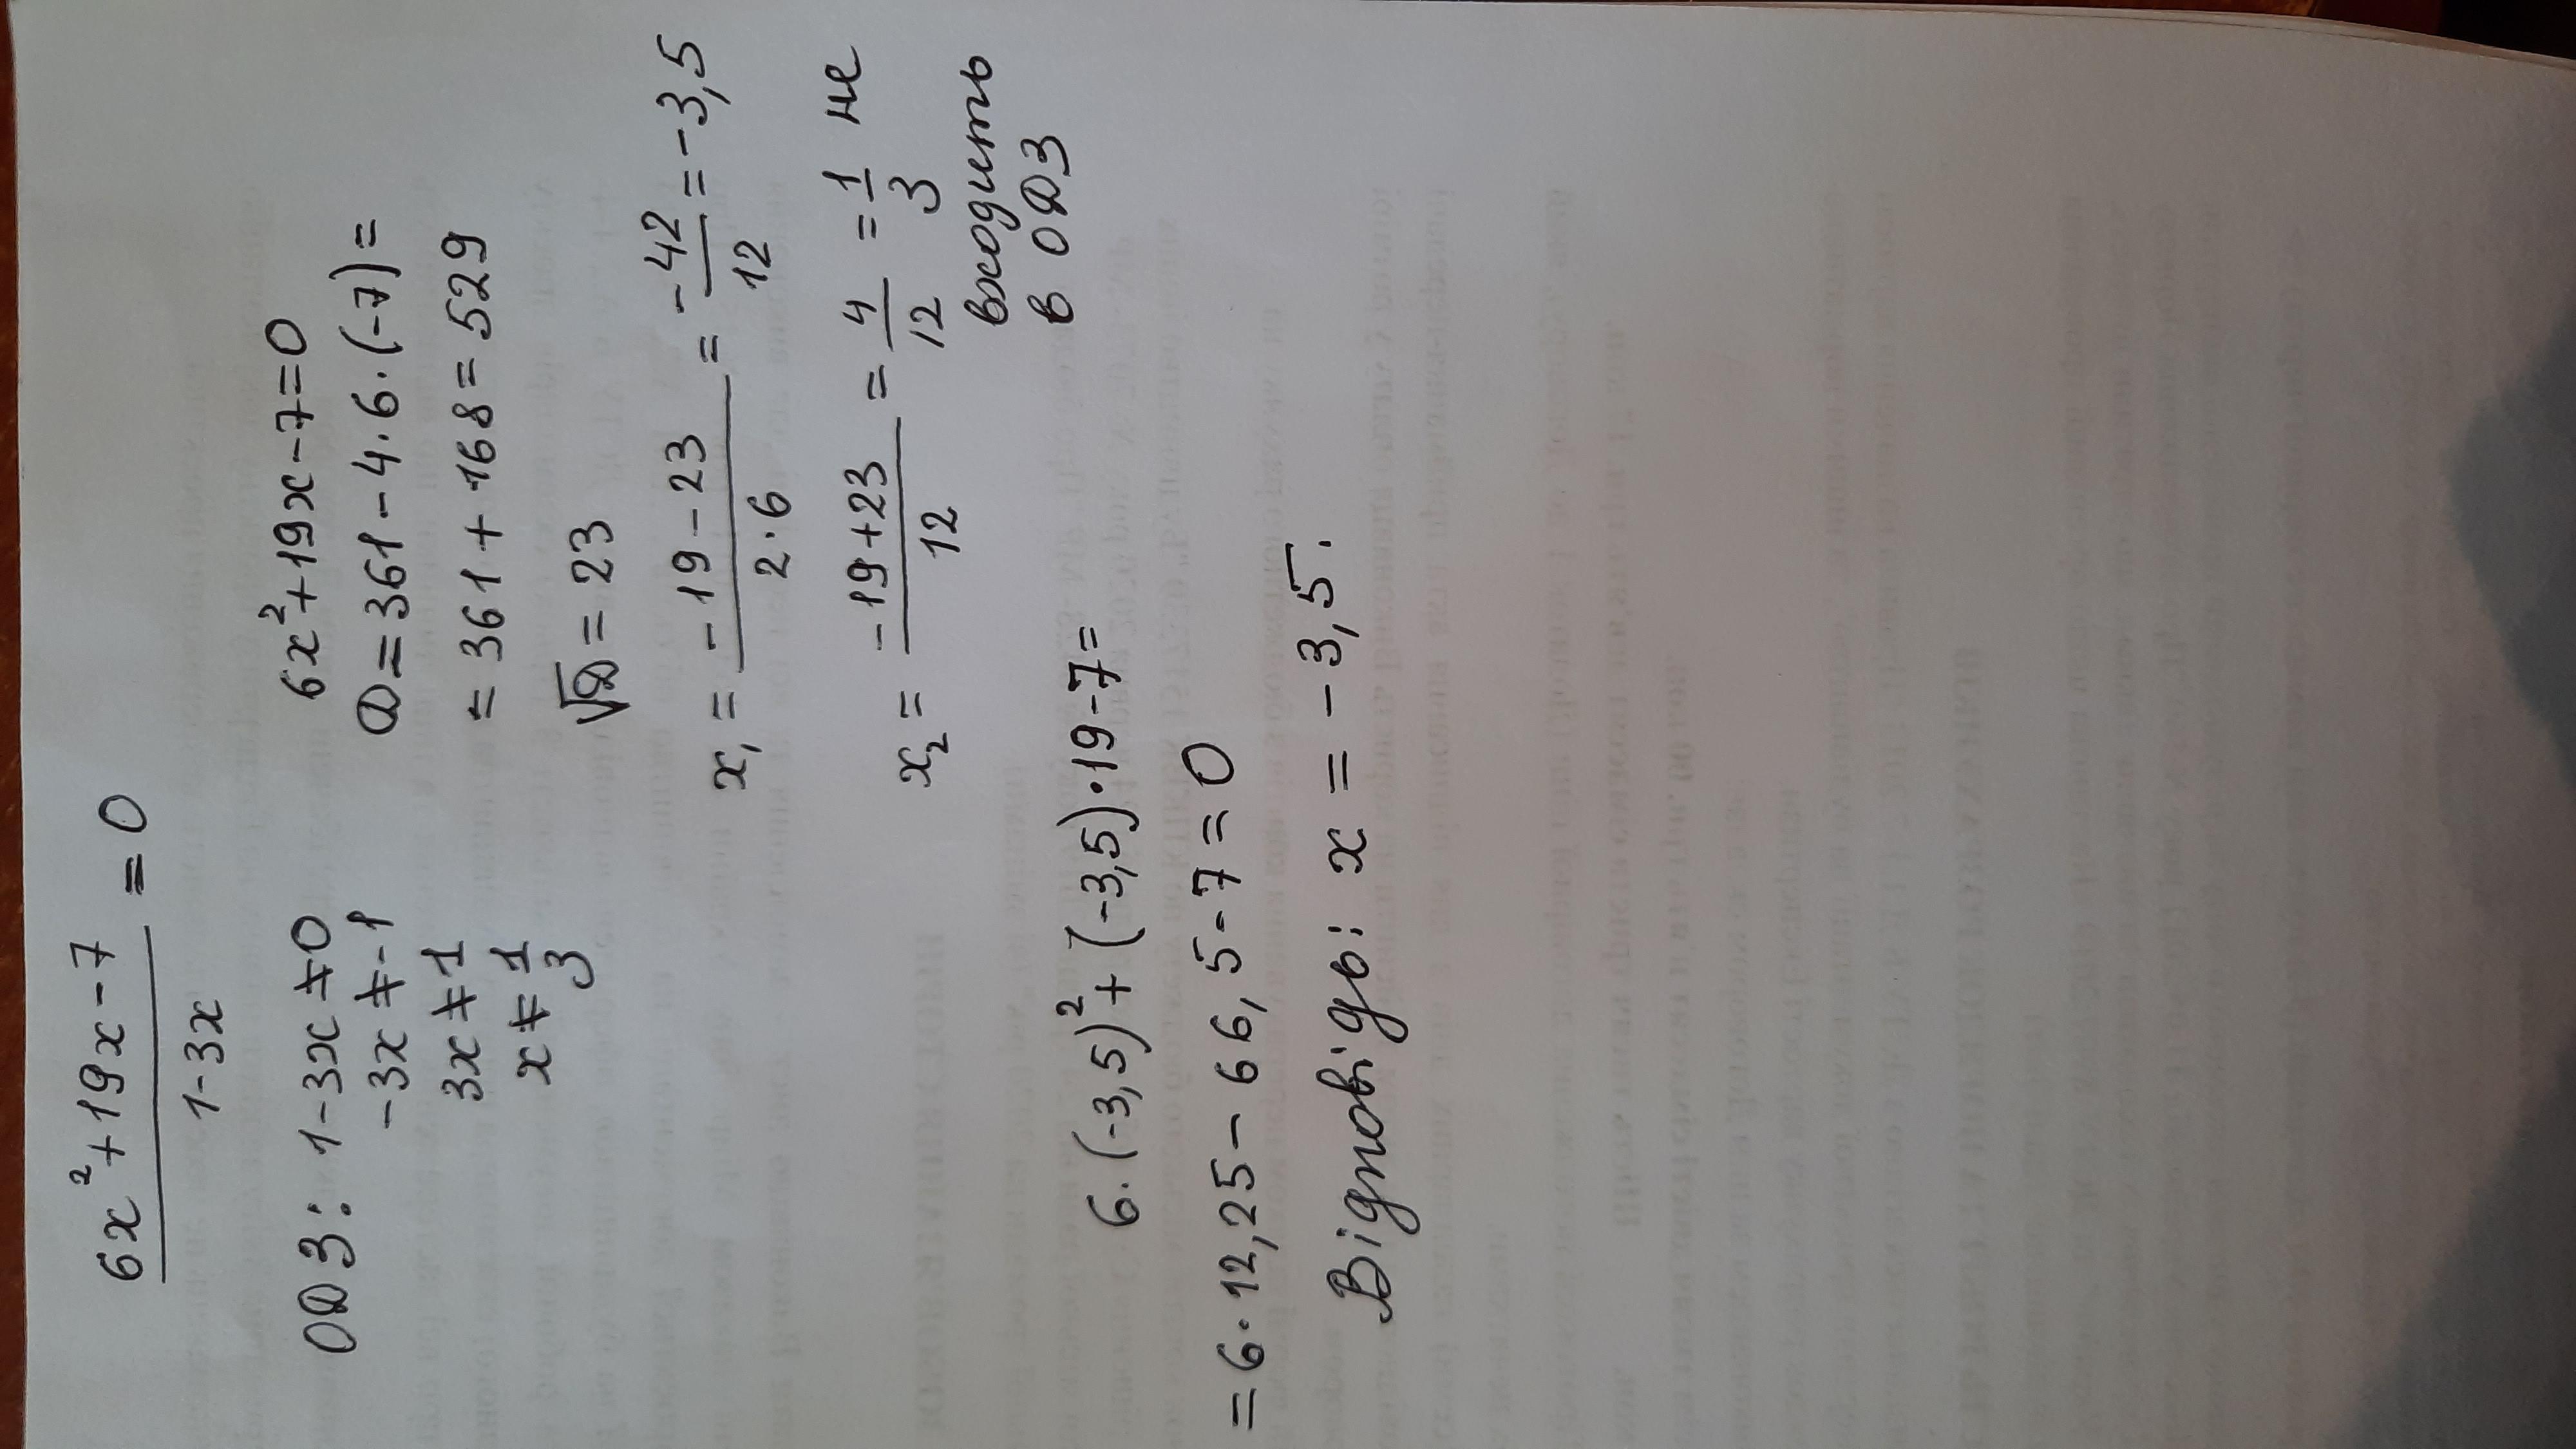 6x²+19x-7 / 1-3x = 0
ОДЗ: 1-3x≠0
-3x≠-1
3x≠1
x≠1/3
6x²+19x-7=0
D=361-4·6·(-7)=
=361+168=529
√D=23
x₁=-19-23 / 2·6=-42/12=-3,5
x₂=-19+23 / 12=4/12=1/3 не
входить
в ОДЗ
6·(-3,5)²+(-3,5)·19-7=
=6·12,25-66,5-7=0
Відповідь: x=-3,5.